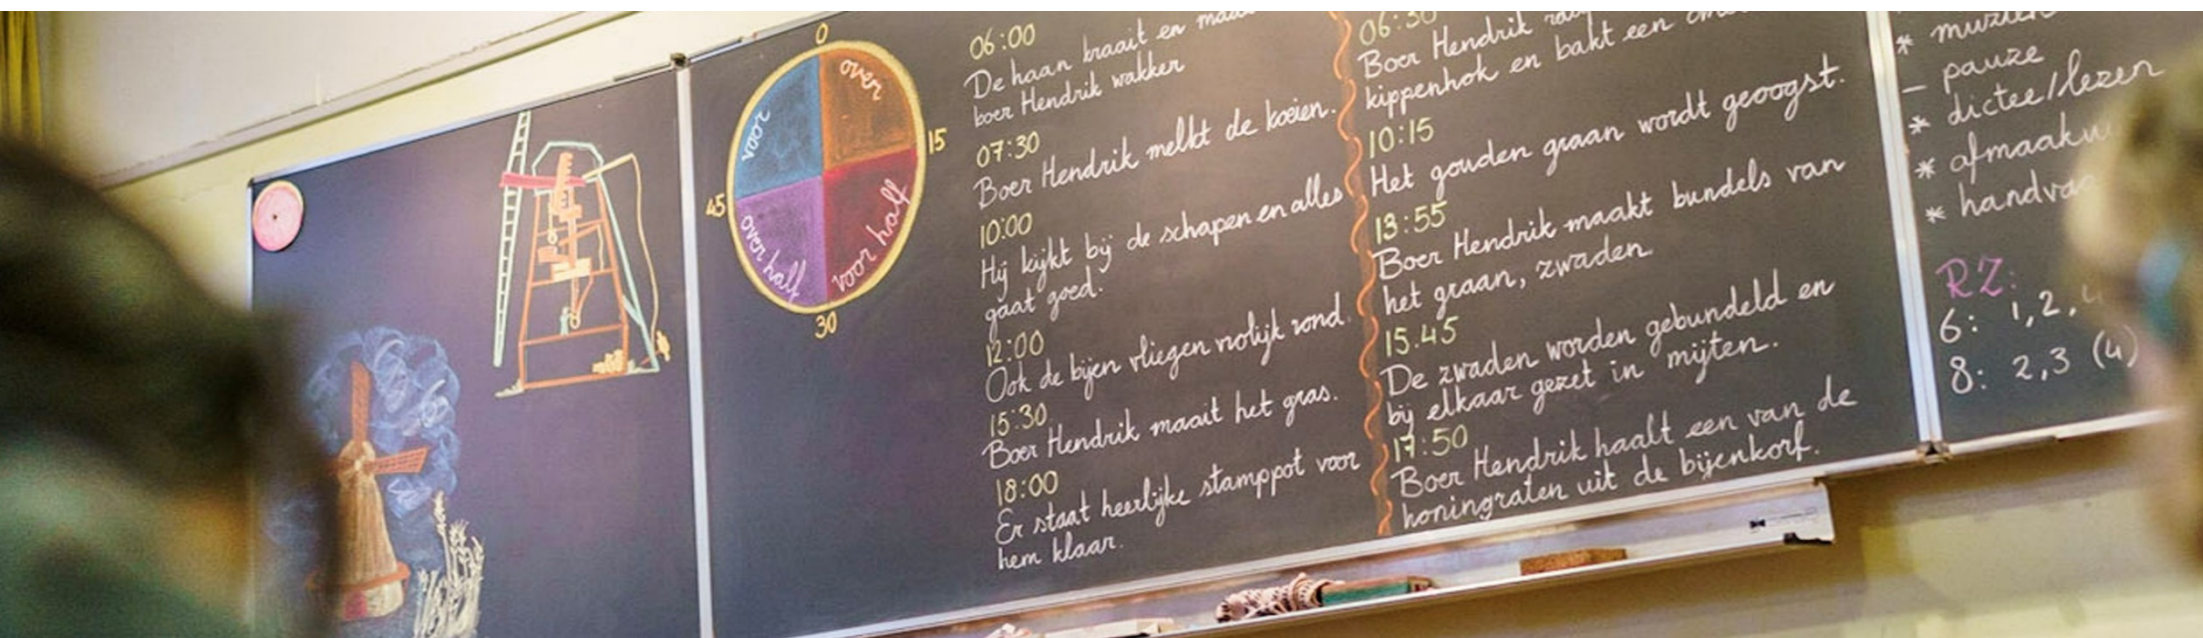 0
over
15
voor half
30
over half
45
voor
06:00
De haan kraait en
boer Hendrik wakker
07:30
Boer Hendrik melkt de koeien.
10:00
Hij kijkt bij de schapen en alles
gaat goed.
12:00
Ook de bijen vliegen vrolijk rond.
15:30
Boer Hendrik maait het gras.
18:00
Er staat heerlijke stamppot voor
hem klaar.
06:30
Boer Hendrik
kippenhok en bakt een
10:15
Het gouden graan wordt geoogst.
13:55
Boer Hendrik maakt bundels van
het graan, zwaden.
15.45
De zwaden worden gebundeld en
bij elkaar gezet in mijten.
17:50
Boer Hendrik haalt een van de
honingraten uit de bijenkorf.
*
- pauze
* dictee/lezen
*
*
RZ:
6: 1,2,
8: 2,3 (4)